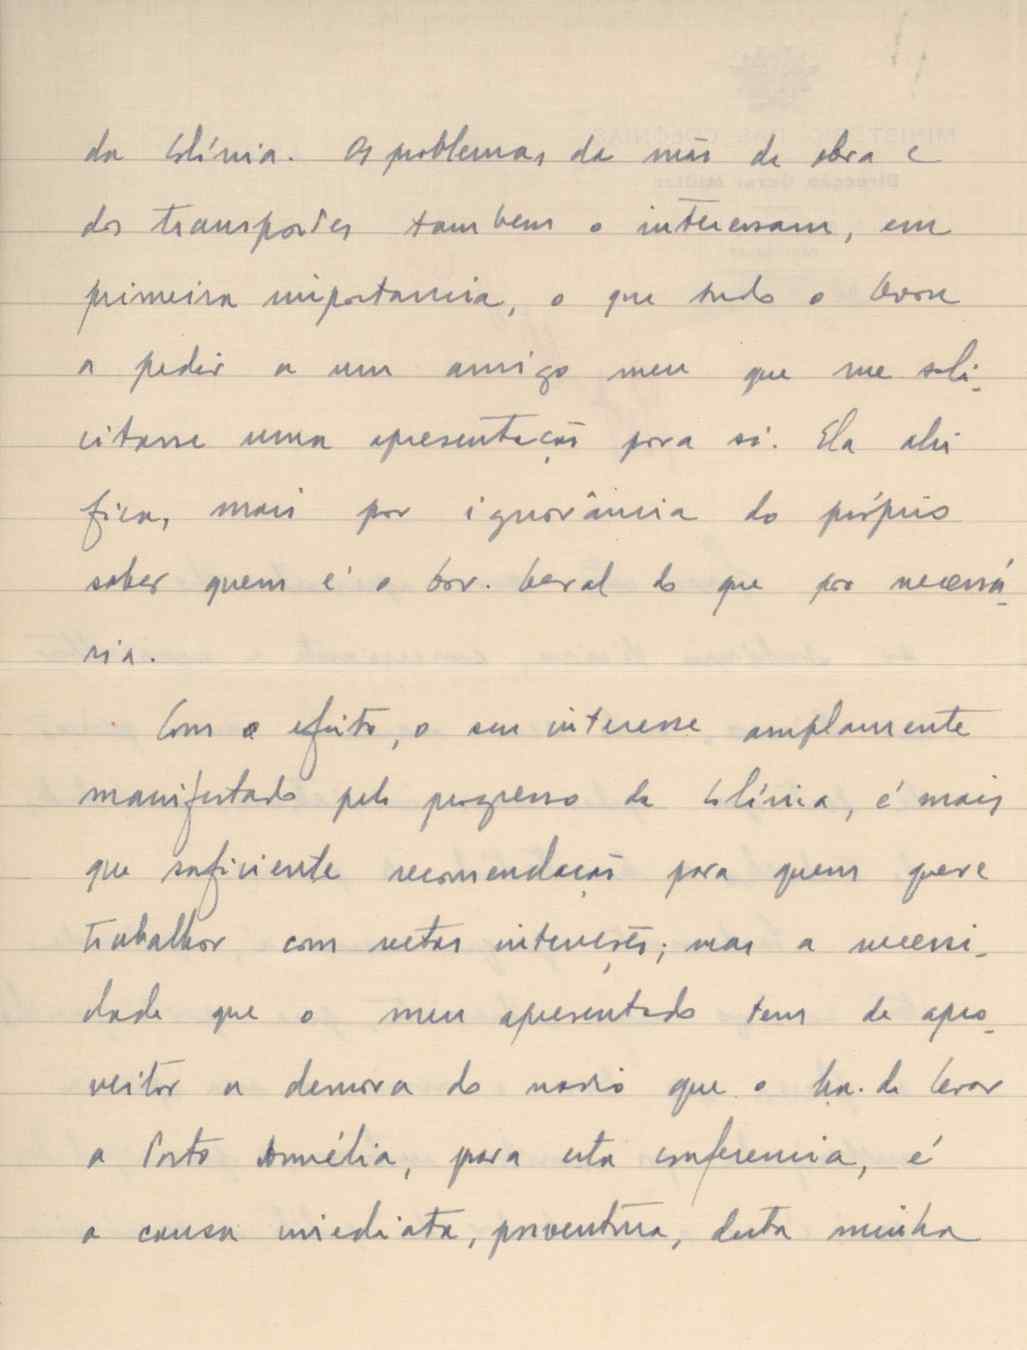 da Colónia. Os problemas da mão de obra e
dos transportes tambem o interessam, em
primeira importancia, o que tudo o levou
a pedir a um amigo meu que me soli-
citasse uma apresentação para si. Ela ahi
fica, mais por ignorância do próprio
saber quem é o Gov. Geral do que por necessá-
ria.
Com o efeito, o seu interesse amplamente
manifestado pelo progresso da Colónia, é mais
que suficiente recomendação para quem quere
trabalhar com rectas intenções; mas a necessi-
dade que o meu apresentado tem de apro-
veitar a demora do navio que o ha-de levar
a Porto Amélia, para esta conferencia, é
a causa imediata, porventura, desta minha